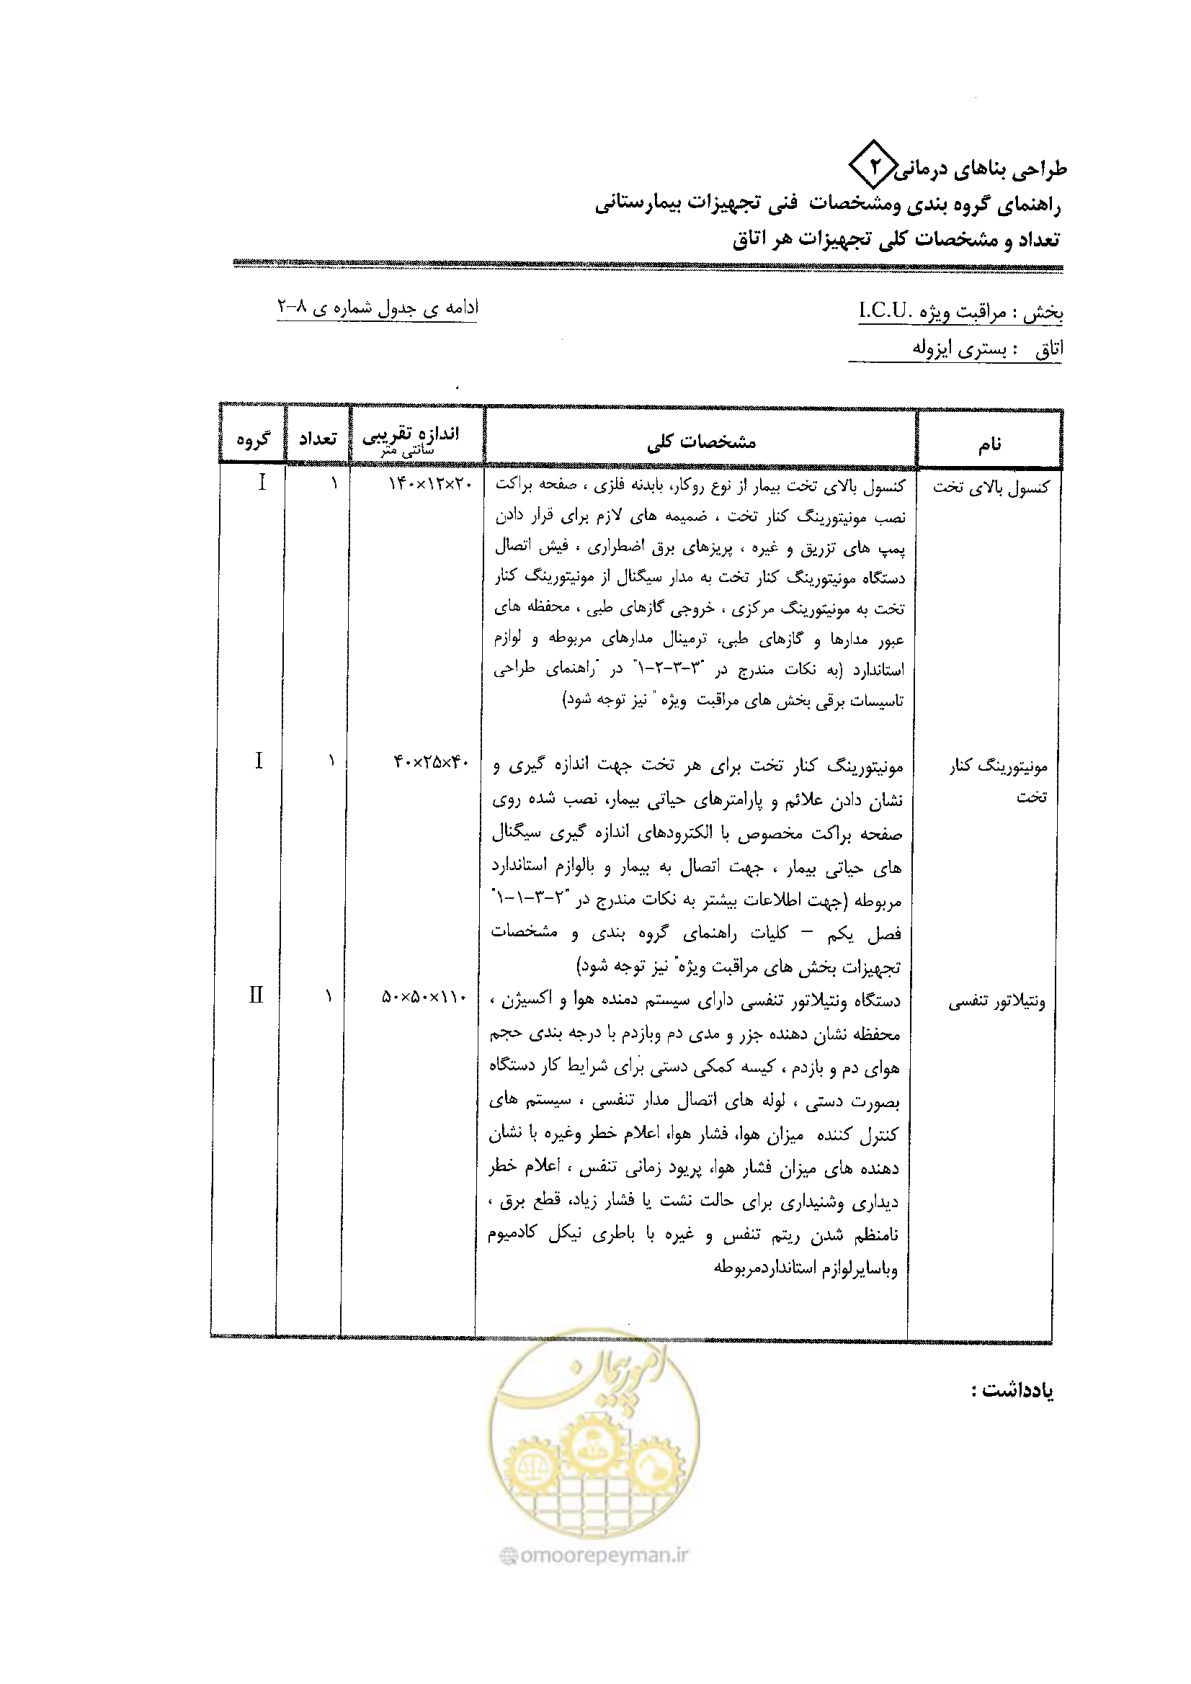 طراحی بناهای درمانی ۲
راهنمای گروه بندی ومشخصات فنی تجهیزات بیمارستانی
تعداد و مشخصات کلی تجهیزات هر اتاق
بخش : مراقبت ویژه I.C.U.
ادامه ی جدول شماره ی ۸-۲
اتاق : بستری ایزوله
نام
مشخصات کلی
اندازه تقریبی
سانتی متر
تعداد
گروه
کنسول بالای تخت
کنسول بالای تخت بیمار از نوع روکار، بابدنه فلزی ، صفحه براکت
نصب مونیتورینگ کنار تخت ، ضمیمه های لازم برای قرار دادن
پمپ های تزریق و غیره ، پریزهای برق اضطراری ، فیش اتصال
دستگاه مونیتورینگ کنار تخت به مدار سیگنال از مونیتورینگ کنار
تخت به مونیتورینگ مرکزی ، خروجی گازهای طبی ، محفظه های
عبور مدارها و گازهای طبی، ترمینال مدارهای مربوطه و لوازم
استاندارد (به نکات مندرج در "۳-۳-۲-۱" در "راهنمای طراحی
تاسیسات برقی بخش های مراقبت ویژه" نیز توجه شود)
۱۴۰×۱۲×۲۰
۱
I
مونیتورینگ کنار
تخت
مونیتورینگ کنار تخت برای هر تخت جهت اندازه گیری و
نشان دادن علائم و پارامترهای حیاتی بیمار، نصب شده روی
صفحه براکت مخصوص با الکترودهای اندازه گیری سیگنال
های حیاتی بیمار ، جهت اتصال به بیمار و بالوازم استاندارد
مربوطه (جهت اطلاعات بیشتر به نکات مندرج در "۲-۳-۱-۱"
فصل یکم – کلیات راهنمای گروه بندی و مشخصات
تجهیزات بخش های مراقبت ویژه" نیز توجه شود)
۴۰×۲۵×۴۰
۱
I
ونتیلاتور تنفسی
دستگاه ونتیلاتور تنفسی دارای سیستم دمنده هوا و اکسیژن ،
محفظه نشان دهنده جزر و مدی دم وبازدم با درجه بندی حجم
هوای دم و بازدم ، کیسه کمکی دستی برای شرایط کار دستگاه
بصورت دستی ، لوله های اتصال مدار تنفسی ، سیستم های
کنترل کننده میزان هوا، فشار هوا، اعلام خطر وغیره با نشان
دهنده های میزان فشار هوا، پریود زمانی تنفس ، اعلام خطر
دیداری وشنیداری برای حالت نشت یا فشار زیاد، قطع برق ،
نامنظم شدن ریتم تنفس و غیره با باطری نیکل کادمیوم
وباسایرلوازم استانداردمربوطه
۵۰×۵۰×۱۱۰
۱
II
یادداشت :
امور پیمان
@omoorepeyman.ir